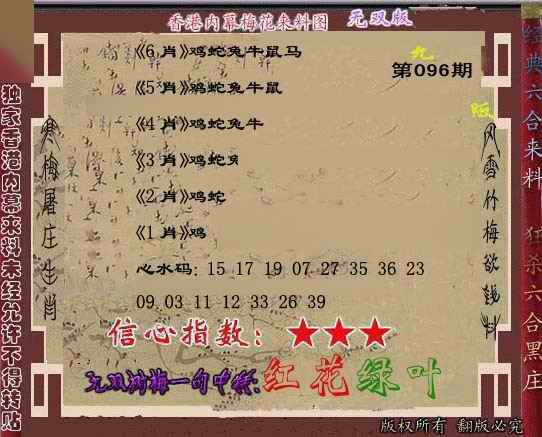 香港内幕梅花来料图 无双版
九
《6 肖》鸡蛇兔牛鼠马
第096期
《5 肖》鸡蛇兔牛鼠
版
《4 肖》鸡蛇兔牛
《3 肖》鸡蛇兔
《2 肖》鸡蛇
《1 肖》鸡
心水码: 15 17 19 07 27 35 36 23
09 03 11 12 33 26 39
信心指数: ★★★
红花绿叶
独家香港内幕来料未经允许不得转贴
寒梅屠庄生肖
风雪竹梅欲钱料
经典六合来料
狂杀六合黑庄
版权所有 翻版必究